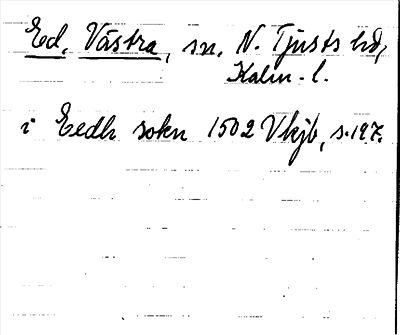 Ed, Västra, sn, N. Tjusts hd,
Kalm. l.
i Eedh sokn 1502 Vkjb, s. 197.